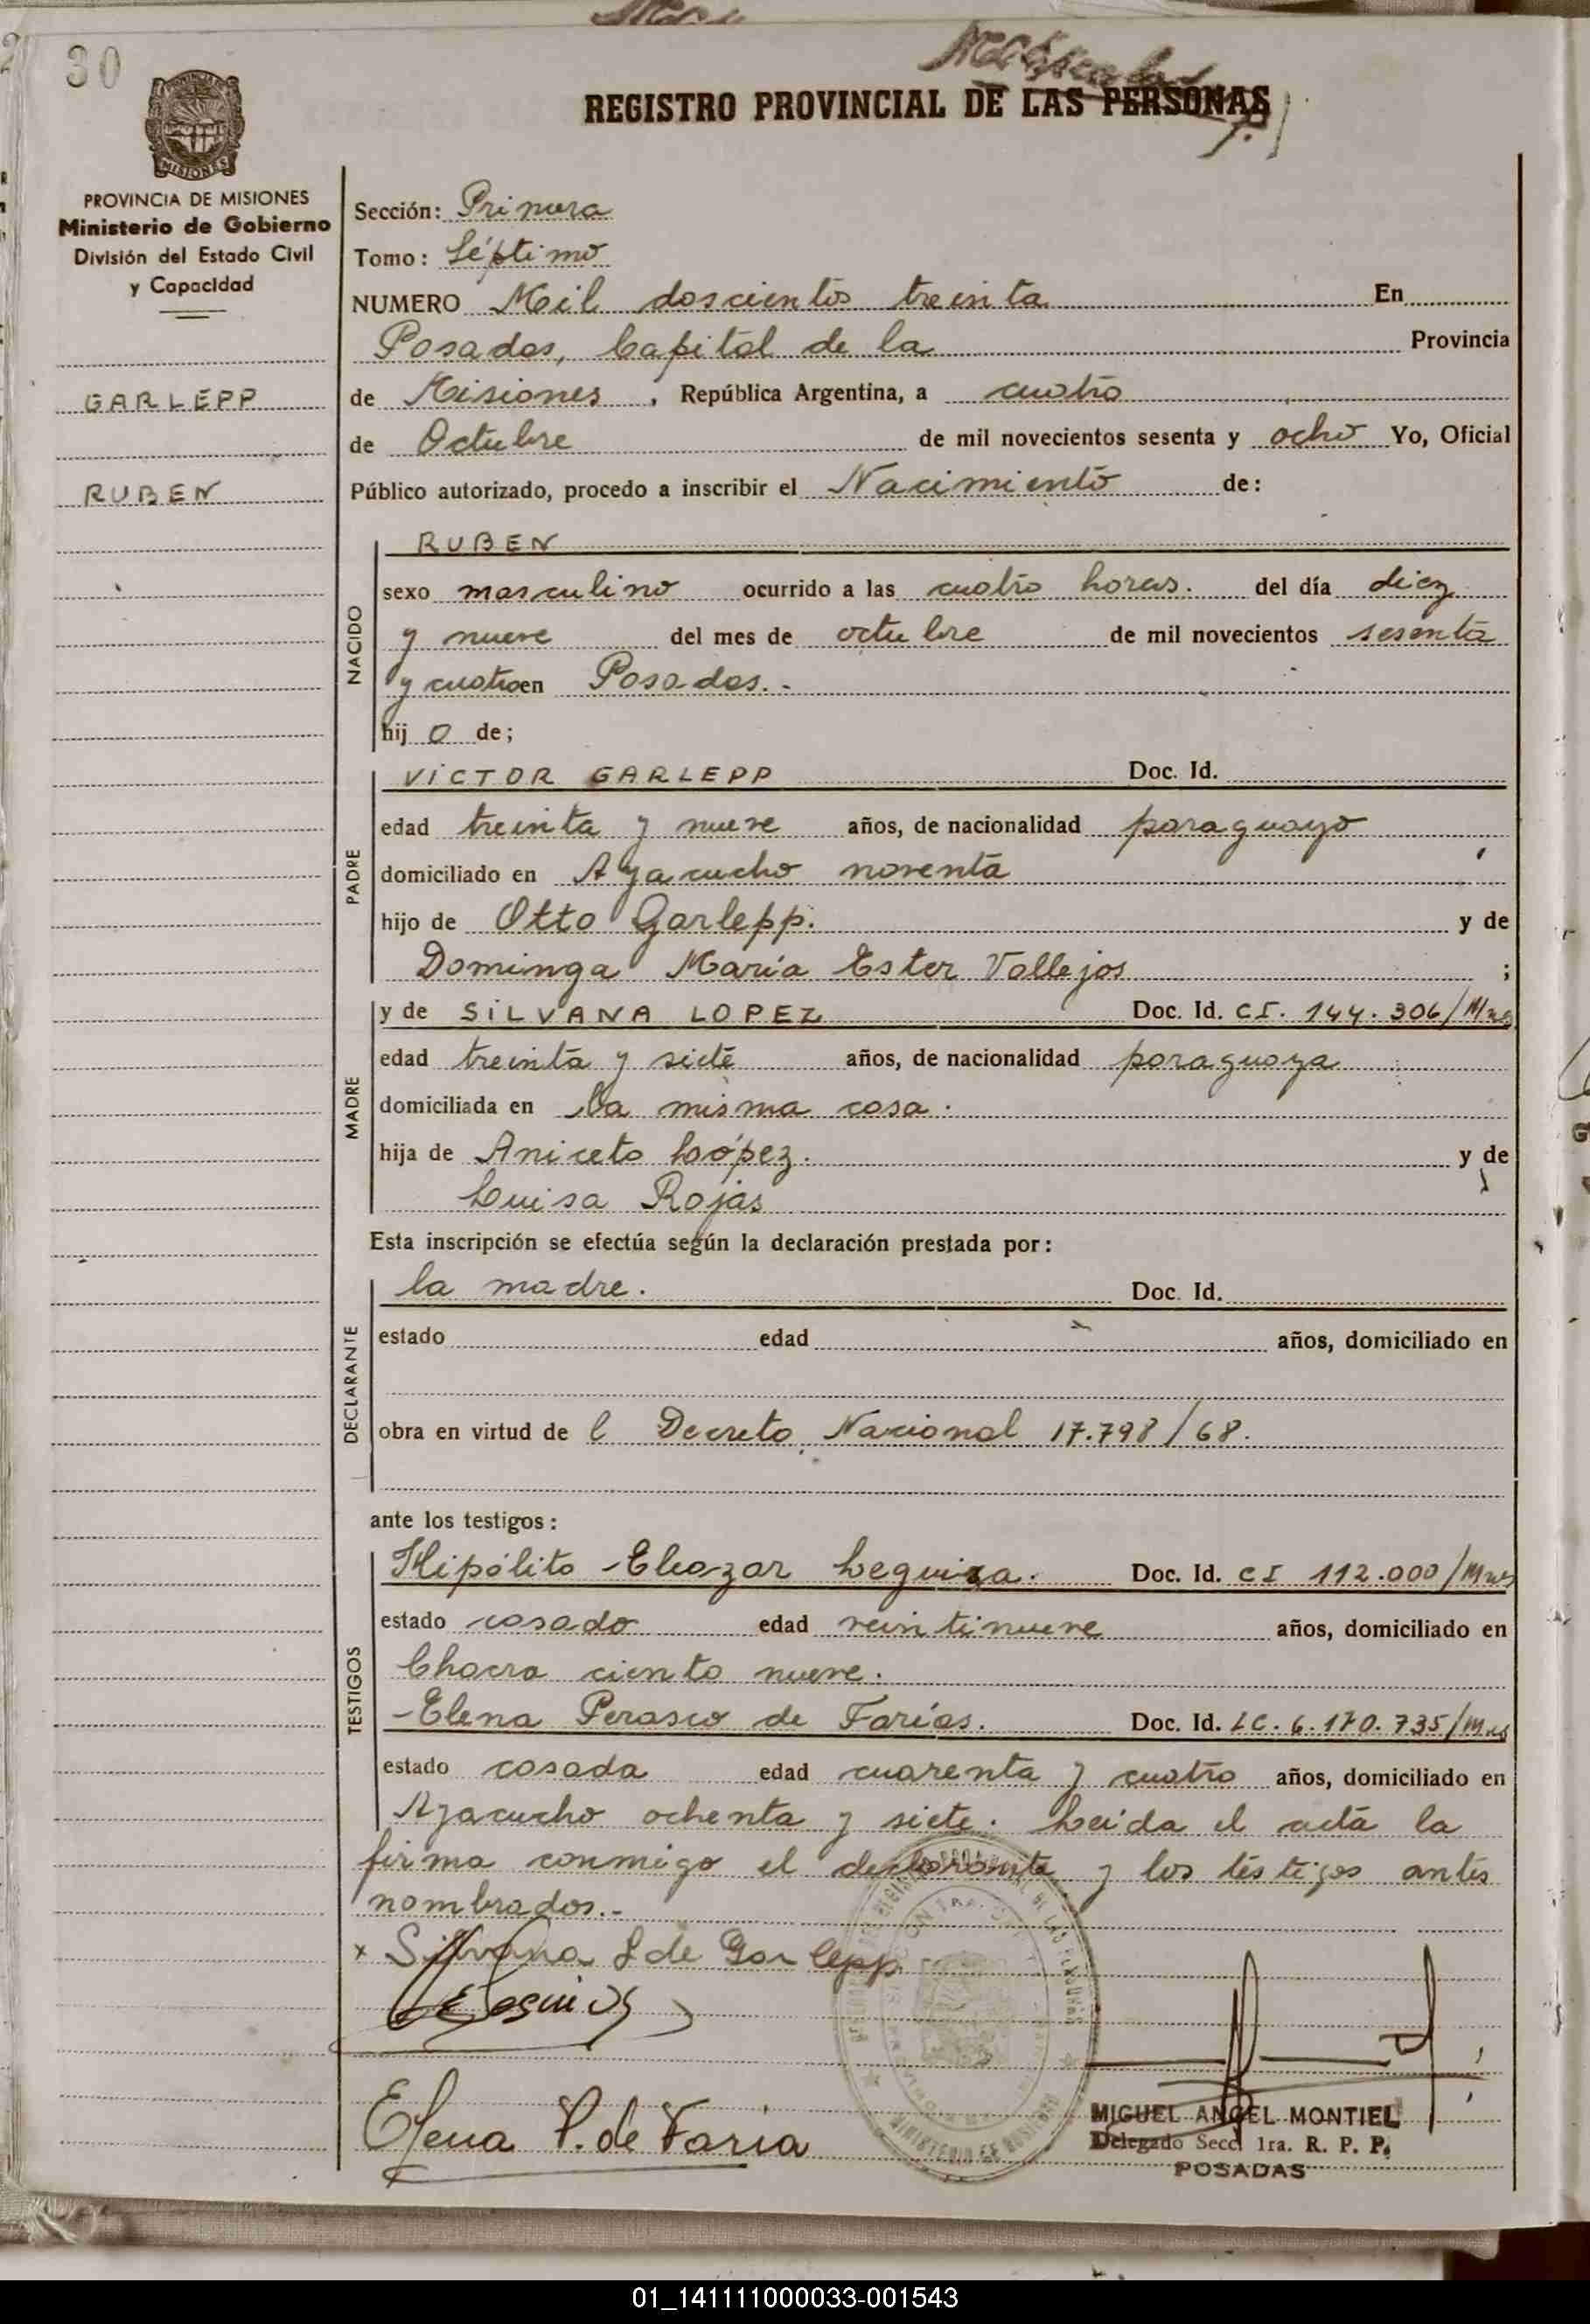 30
REGISTRO PROVINCIAL DE LAS PERSONAS
MISIONES
PROVINCIA DE MISIONES
Ministerio de Gobierno
División del Estado Civil
y Capacidad
GARLEPP
RUBEN
Sección: Primera
Tomo: Séptimo
NUMERO Mil doscientos treinta En
Posadas, Capital de la Provincia
de Misiones, República Argentina, a cuatro
de Octubre de mil novecientos sesenta y ocho Yo, Oficial
Público autorizado, procedo a inscribir el Nacimiento de:
NACIDO
RUBEN
sexo masculino ocurrido a las cuatro horas. del día diez
y nueve del mes de octubre de mil novecientos sesenta
y cuatro en Posadas.-
hij o de;
PADRE
VICTOR GARLEPP Doc. Id.
edad treinta y nueve años, de nacionalidad paraguayo
domiciliado en Ayacucho noventa
hijo de Otto Garlepp. y de
Dominga María Ester Vallejos ;
MADRE
y de SILVANA LOPEZ Doc. Id. CI. 144.306/Mnes
edad treinta y siete años, de nacionalidad paraguaya
domiciliada en la misma casa.
hija de Aniceto López. y de
Luisa Rojas
Esta inscripción se efectúa según la declaración prestada por:
DECLARANTE
la madre. Doc. Id.
estado edad años, domiciliado en
obra en virtud de l Decreto Nacional 17.798/68.
ante los testigos:
TESTIGOS
Hipólito Eleazar Leguiza. Doc. Id. CI 112.000/Mnes
estado casado edad veintinueve años, domiciliado en
Chacra ciento nueve.
Elena Perasco de Farías. Doc. Id. LC. 6.170.735/Mnes
estado casada edad cuarenta y cuatro años, domiciliado en
Ayacucho ochenta y siete. Leida el acta la
firma conmigo el declarante y los testigos antes
nombrados.-
x Silvana L de Garlepp
Elena P. de Faria
MIGUEL ANGEL MONTIEL
Delegado Secc. 1ra. R. P. P.
POSADAS
01_141111000033-001543